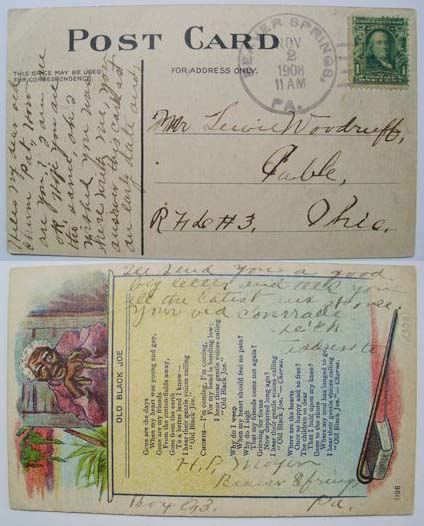 POST CARD
THIS SPACE MAY BE USED
FOR CORRESPONDENCE.
FOR ADDRESS ONLY.
BEAVER SPRINGS,
NOV
2
1908
11 AM
PA.
Hello my dear old
Chum Pal, how
are you. I am
ok. Hope you are
the same. oh I
wished you was
here with me,
answer this card at
an early date and
Mr Lewis Woodruff,
Cable,
R F D #3. Ohio.
Ill send you a good
big letter and tell you
all the latest and at once.
Your old Comrade
address to
OLD BLACK JOE
Gone are my days
When my heart was young and gay,
Gone are my friends
From the cotton-fields away,
Gone from the earth
To a better land I know—
I hear their gentle voices calling
"Old Black Joe."
CHORUS—I'm coming, I'm coming,
For my head is bending low;
I hear those gentle voices calling
"Old Black Joe."
Why do I weep
When my heart should feel no pain?
Why do I sigh
That my friends come not again?
Grieving for forms
Now departed long ago?
I hear their gentle voices calling
"Old Black Joe."—Chorus.
Where are the hearts
Once so happy and so free?
The children so dear
That I held upon my knee?
Gone to the shore
Where my soul has longed to go,
I hear their gentle voices calling
"Old Black Joe."—Chorus.
H. P. Moyer
Beaver Springs
Box 93. Pa.